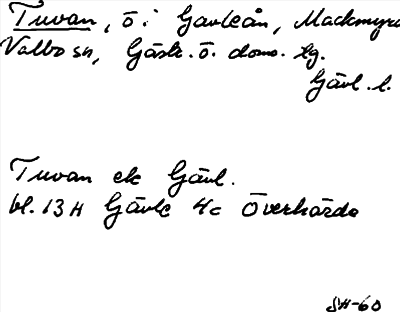 Tuvan, ö. i Gavleån, Mackmyra
Valbo sn, Gästr. ö. doms. lg.
Gävl. l.
Tuvan ek Gävl.
bl. 13 H Gävle 4c Överhärde
SH-60